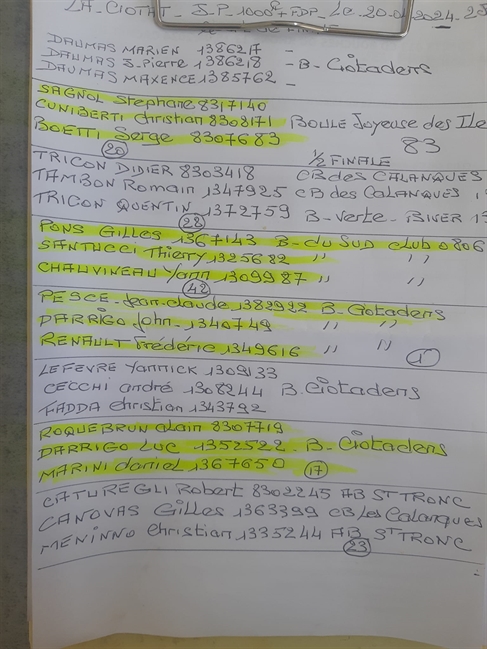 LA CIOTAT - J-P- 1000€ + FDP - Le 20-0 2024
DAUMAS MARIEN 138621A -
DAUMAS J-Pierre 1386218 - B- Ciotadens
DAUMAS MAXENCE 1385762 -
SAGNOL Stephane 8317140
CUNIBERTI christian 8308171 BOULE Joyeuse des Ile
BOETTI Serge 8307683 83
20 1/2 FINALE
TRICON DIDIER 8303418 CB des CALANQUES
TAMBON Romain 1347925 CB des CALANQUES
TRICON QUENTIN 1372759 B- Verte - BIVER 13
28
PONS Gilles 1367143 B- du SUD club 0806
SANTUCCI Thierry 1325682 // //
CHAUVINEAU Yann 1309987 // //
42
PESCE-Jean-claude 1382922 B- Ciotadens
DARRIGO John- 1340749 // //
RENAULT Frédéric 1349616 // // 1
LEFEVRE Yannick 1309133
CECCHI andré 1308244 B. Ciotadens
FADDA christian 1343792
ROQUEBRUN alain 8307719
DARRIGO Luc 1352522 - B- Ciotadens
MARINI daniel 1367650 17
CATUREGLI Robert 8302245 AB ST TRONC
CANOVAS Gilles 1363399 CB Les Calanques
MENINNO christian 1335244 AB ST TRONC
23